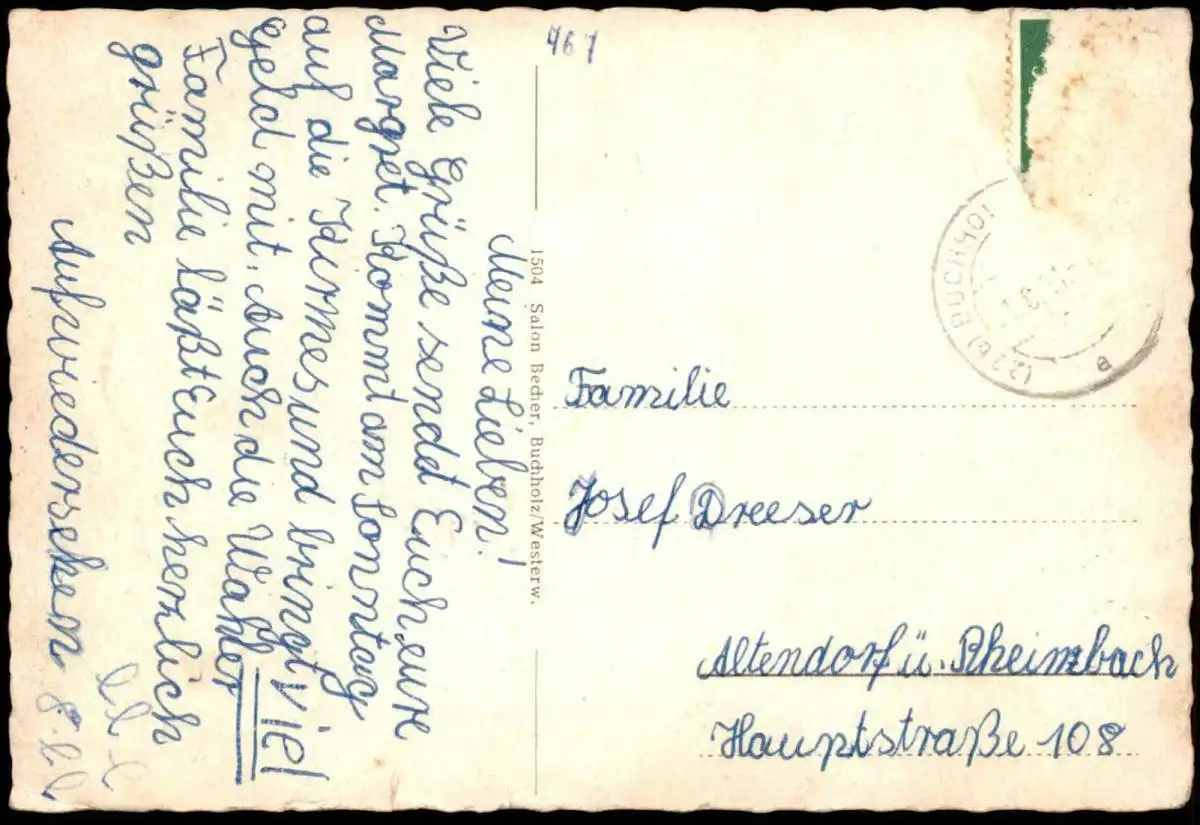 467
Meine Lieben!
Viele Grüße sendt Euch eure
Margret. Kommt am Sonntag
auf die Kirmes und bringt viel
Geld mit. Auch die Wahler
Familie läßt Euch herzlich
grüßen
Aufwiedersehen
1504 Salon Becher, Buchholz/Westerw.
(22b) BUCHHOL
a
Familie
Josef Dreeser
Altendorf ü. Rheimbach
Hauptstraße 108